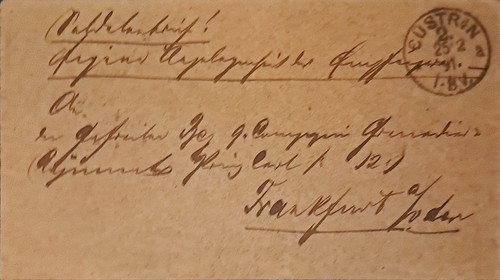 Soldatenbrief!
Eigene Angelegenheit des Empfängers
An
den Gefreiten 9. Compagnie Grenadier=
Regiments Prinz Carl 12)
Frankfurt a/Oder
CÜSTRIN
25 2
91.
7-8V.